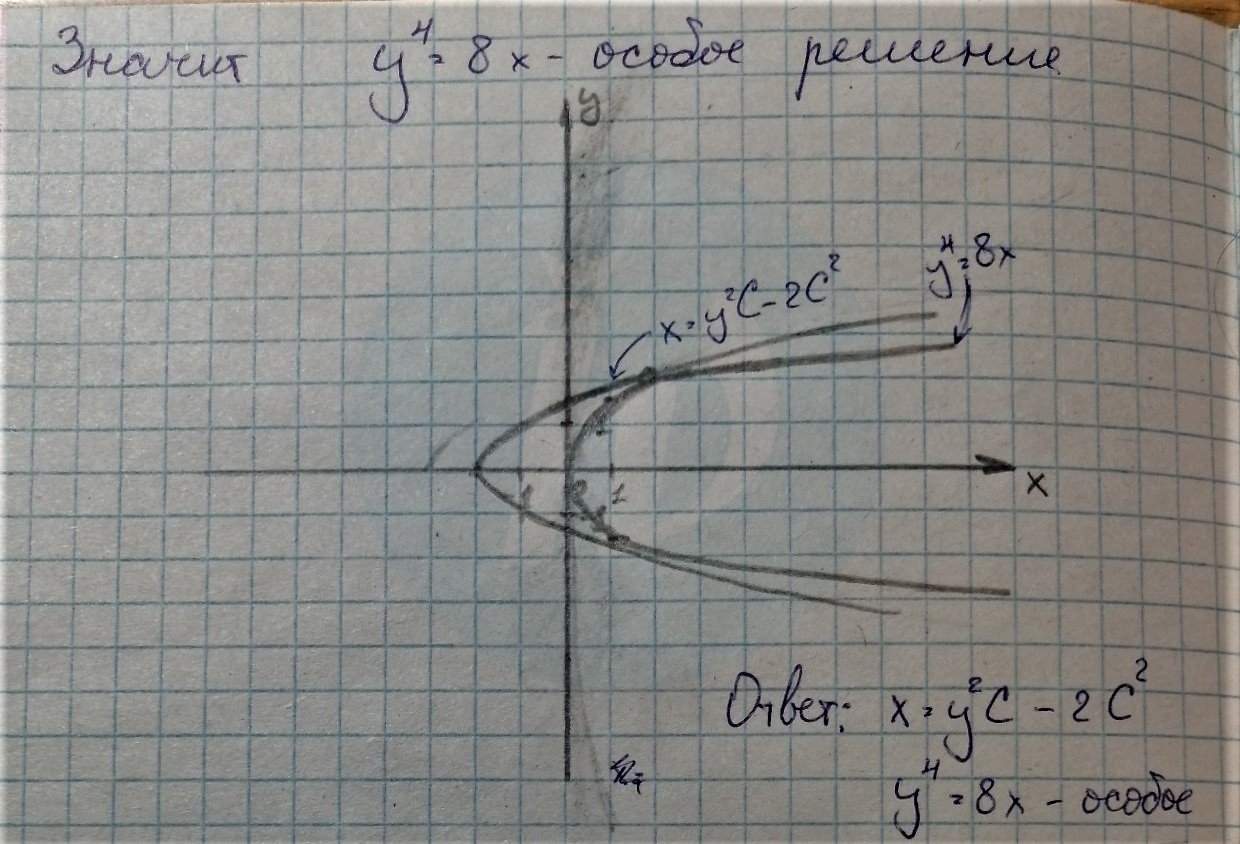 Значит y⁴ = 8x - особое решение
y
y⁴ = 8x
x = y²C - 2C²
x
1
Ответ: x = y²C - 2C²
y⁴ = 8x - особое